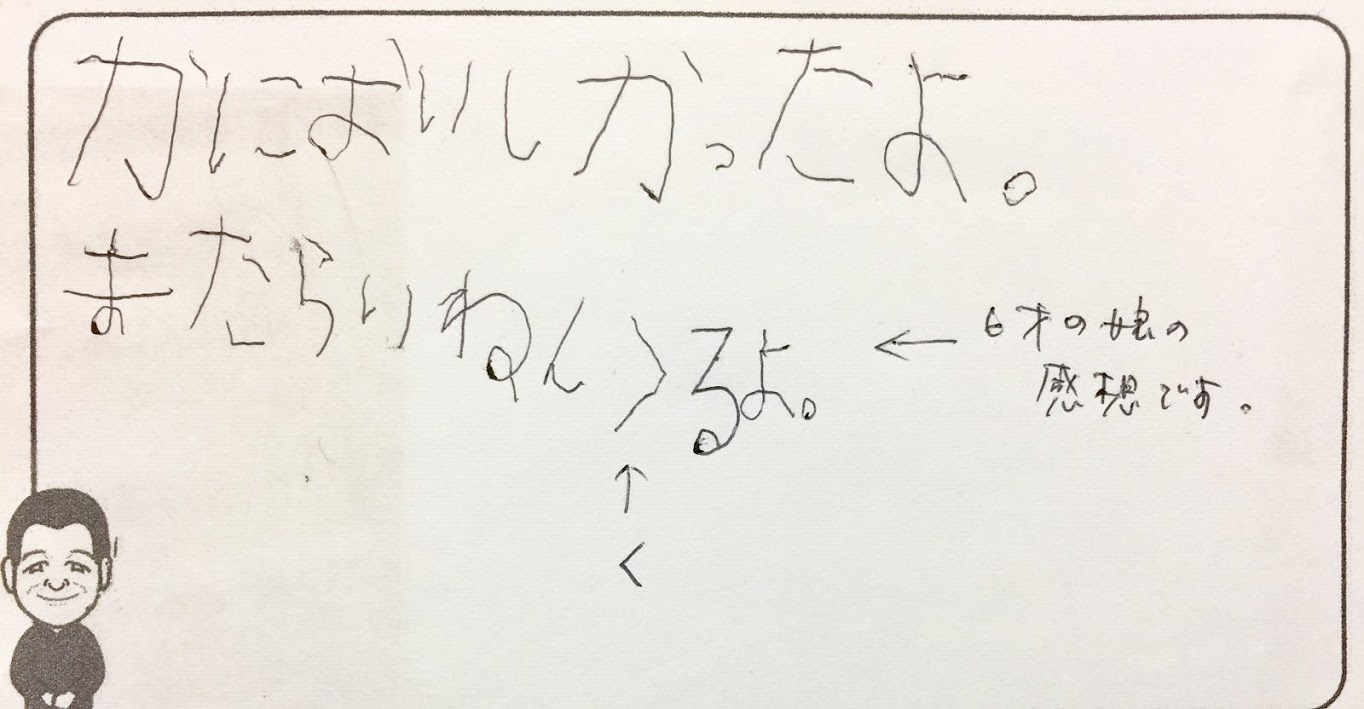 かにおいしかったよ。
またらりねんくるよ。
← 6才の娘の
感想です。
↑
く